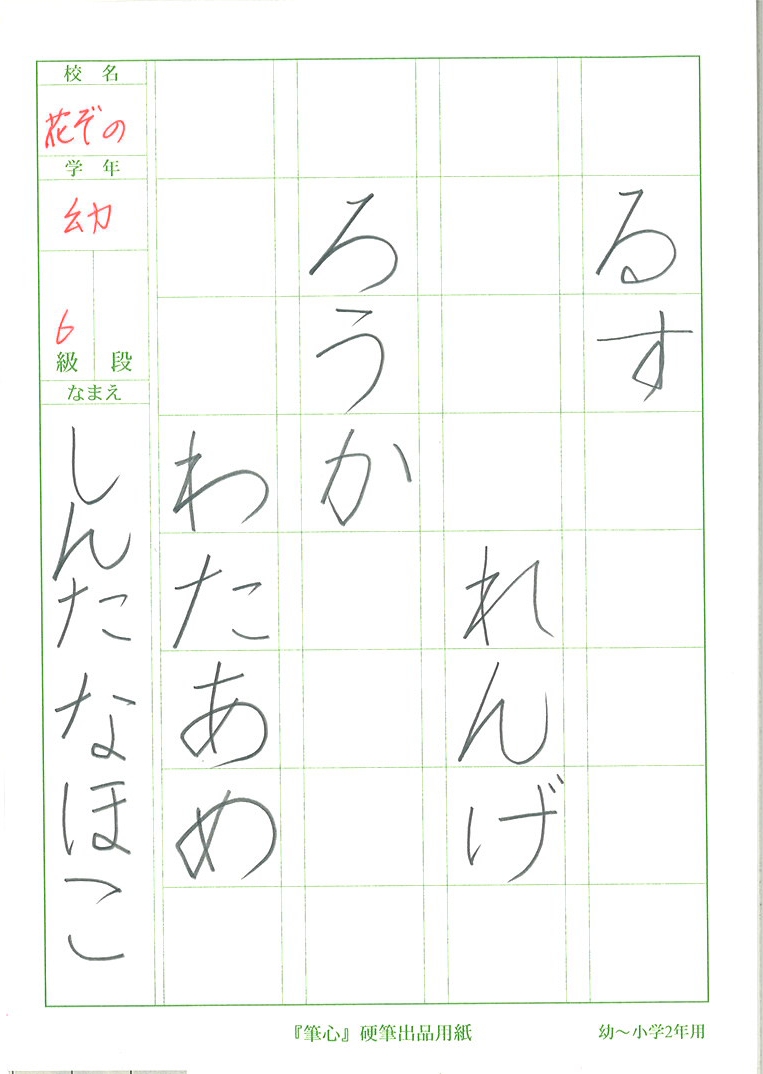 るす
れんげ
ろうか
わたあめ
校名
花ぞの
学年
幼
6
級 段
なまえ
しんたなほこ
『筆心』硬筆出品用紙
幼～小学2年用